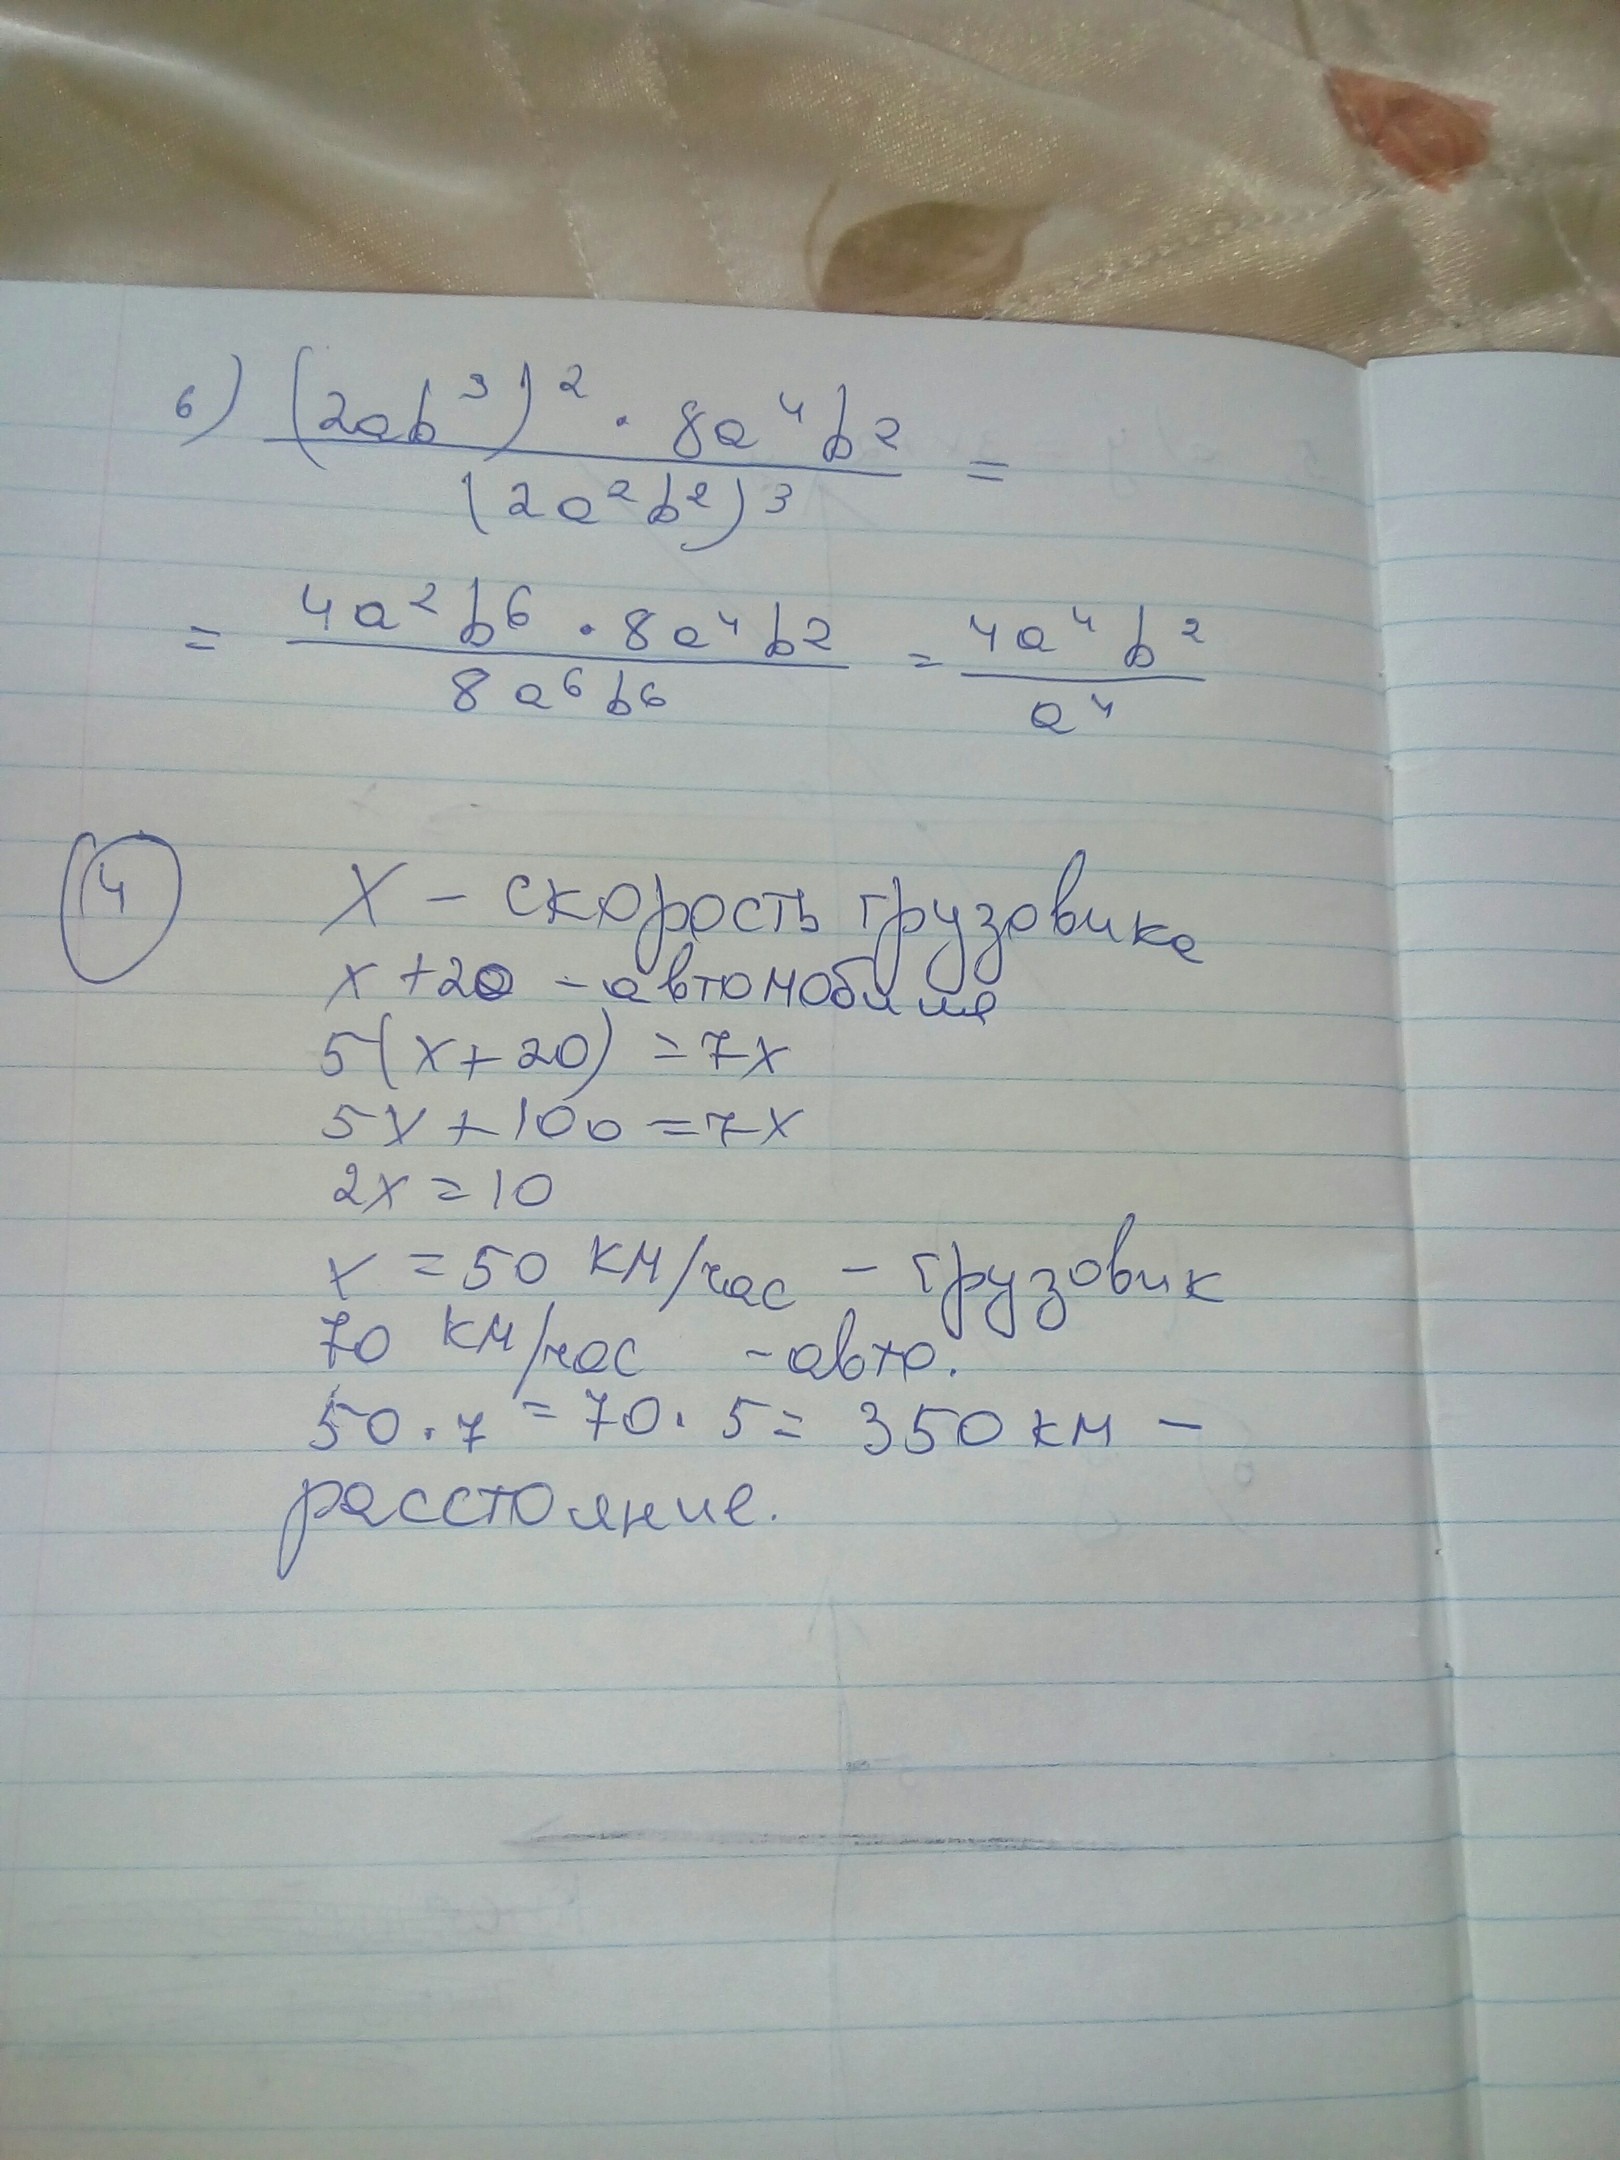 б) (2ab³)² · 8a⁴b²
(2a²b²)³ =
= 4a²b⁶ · 8a⁴b² / 8a⁶b⁶ = 4a⁴b² / a⁴
4
X – скорость грузовика
x + 20 – автомобиля
5(x + 20) = 7x
5x + 100 = 7x
2x = 10
x = 50 км/час – грузовик
70 км/час – авто.
50 · 7 = 70 · 5 = 350 км –
расстояние.